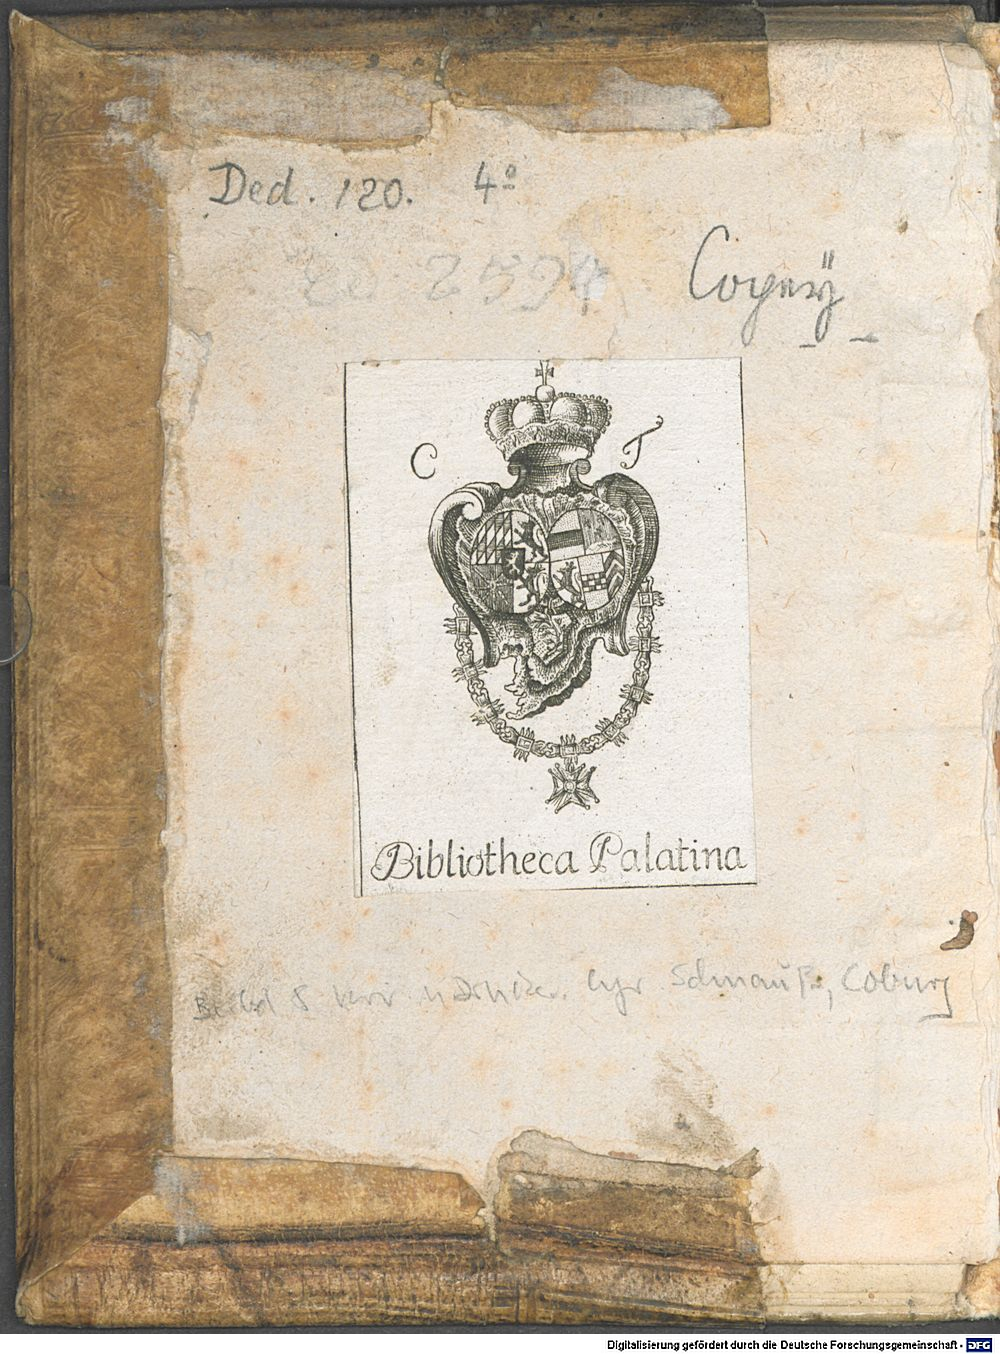 Ded. 120. 4°
Cogeÿ
C T
Bibliotheca Palatina
Schnauß, Coburg
Digitalisierung gefördert durch die Deutsche Forschungsgemeinschaft - DFG